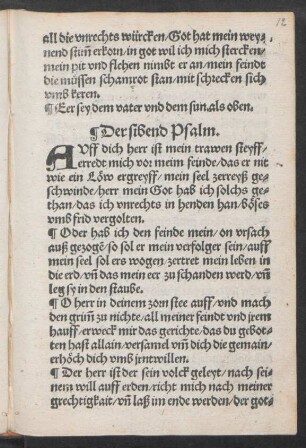 12
all die vnrechts würcken/Got hat mein wey⸗
nend stiṁ erkorn/in got wil ich mich stercken/
mein pit vnd flehen nimbt er an/mein feindt
die müssen schamrot stan/mit schrecken sich
vmb keren.
¶ Eer sey dem vater vnd dem sun.als oben.
¶ Der sibend Psalm.
AVff dich herr ist mein trawen steyff/
erredt mich vor meim feinde/das er nit
wie ein Löw ergreyff/mein seel zerreyß ge⸗
schwinde/herr mein Got hab ich solchs ge⸗
than/das ich vnrechts in henden han/böses
vmb frid vergolten.
¶ Oder hab ich den feinde mein/on vrsach
auß gezogē/so sol er mein verfolger sein/auff
mein seel sol ers wogen/zertret mein leben in
die erd/vn̄ das mein eer zu schanden werd/vn̄
leg sy in den staube.
¶ O herr in deinem zorn stee auff/vnd mach
den griṁ zu nichte/all meiner feindt vnd jrem
hauff/erweck mir das gerichte/das du gebot⸗
ten hast allain/versamel vm̄ dich die gemain/
erhöch dich vmb jrntwillen.
¶ Der herr ist der sein volck geleyt/nach sei⸗
nem will auff erden/richt mich nach meiner
grechtigkait/vn̄ laß im ende werden/der got⸗